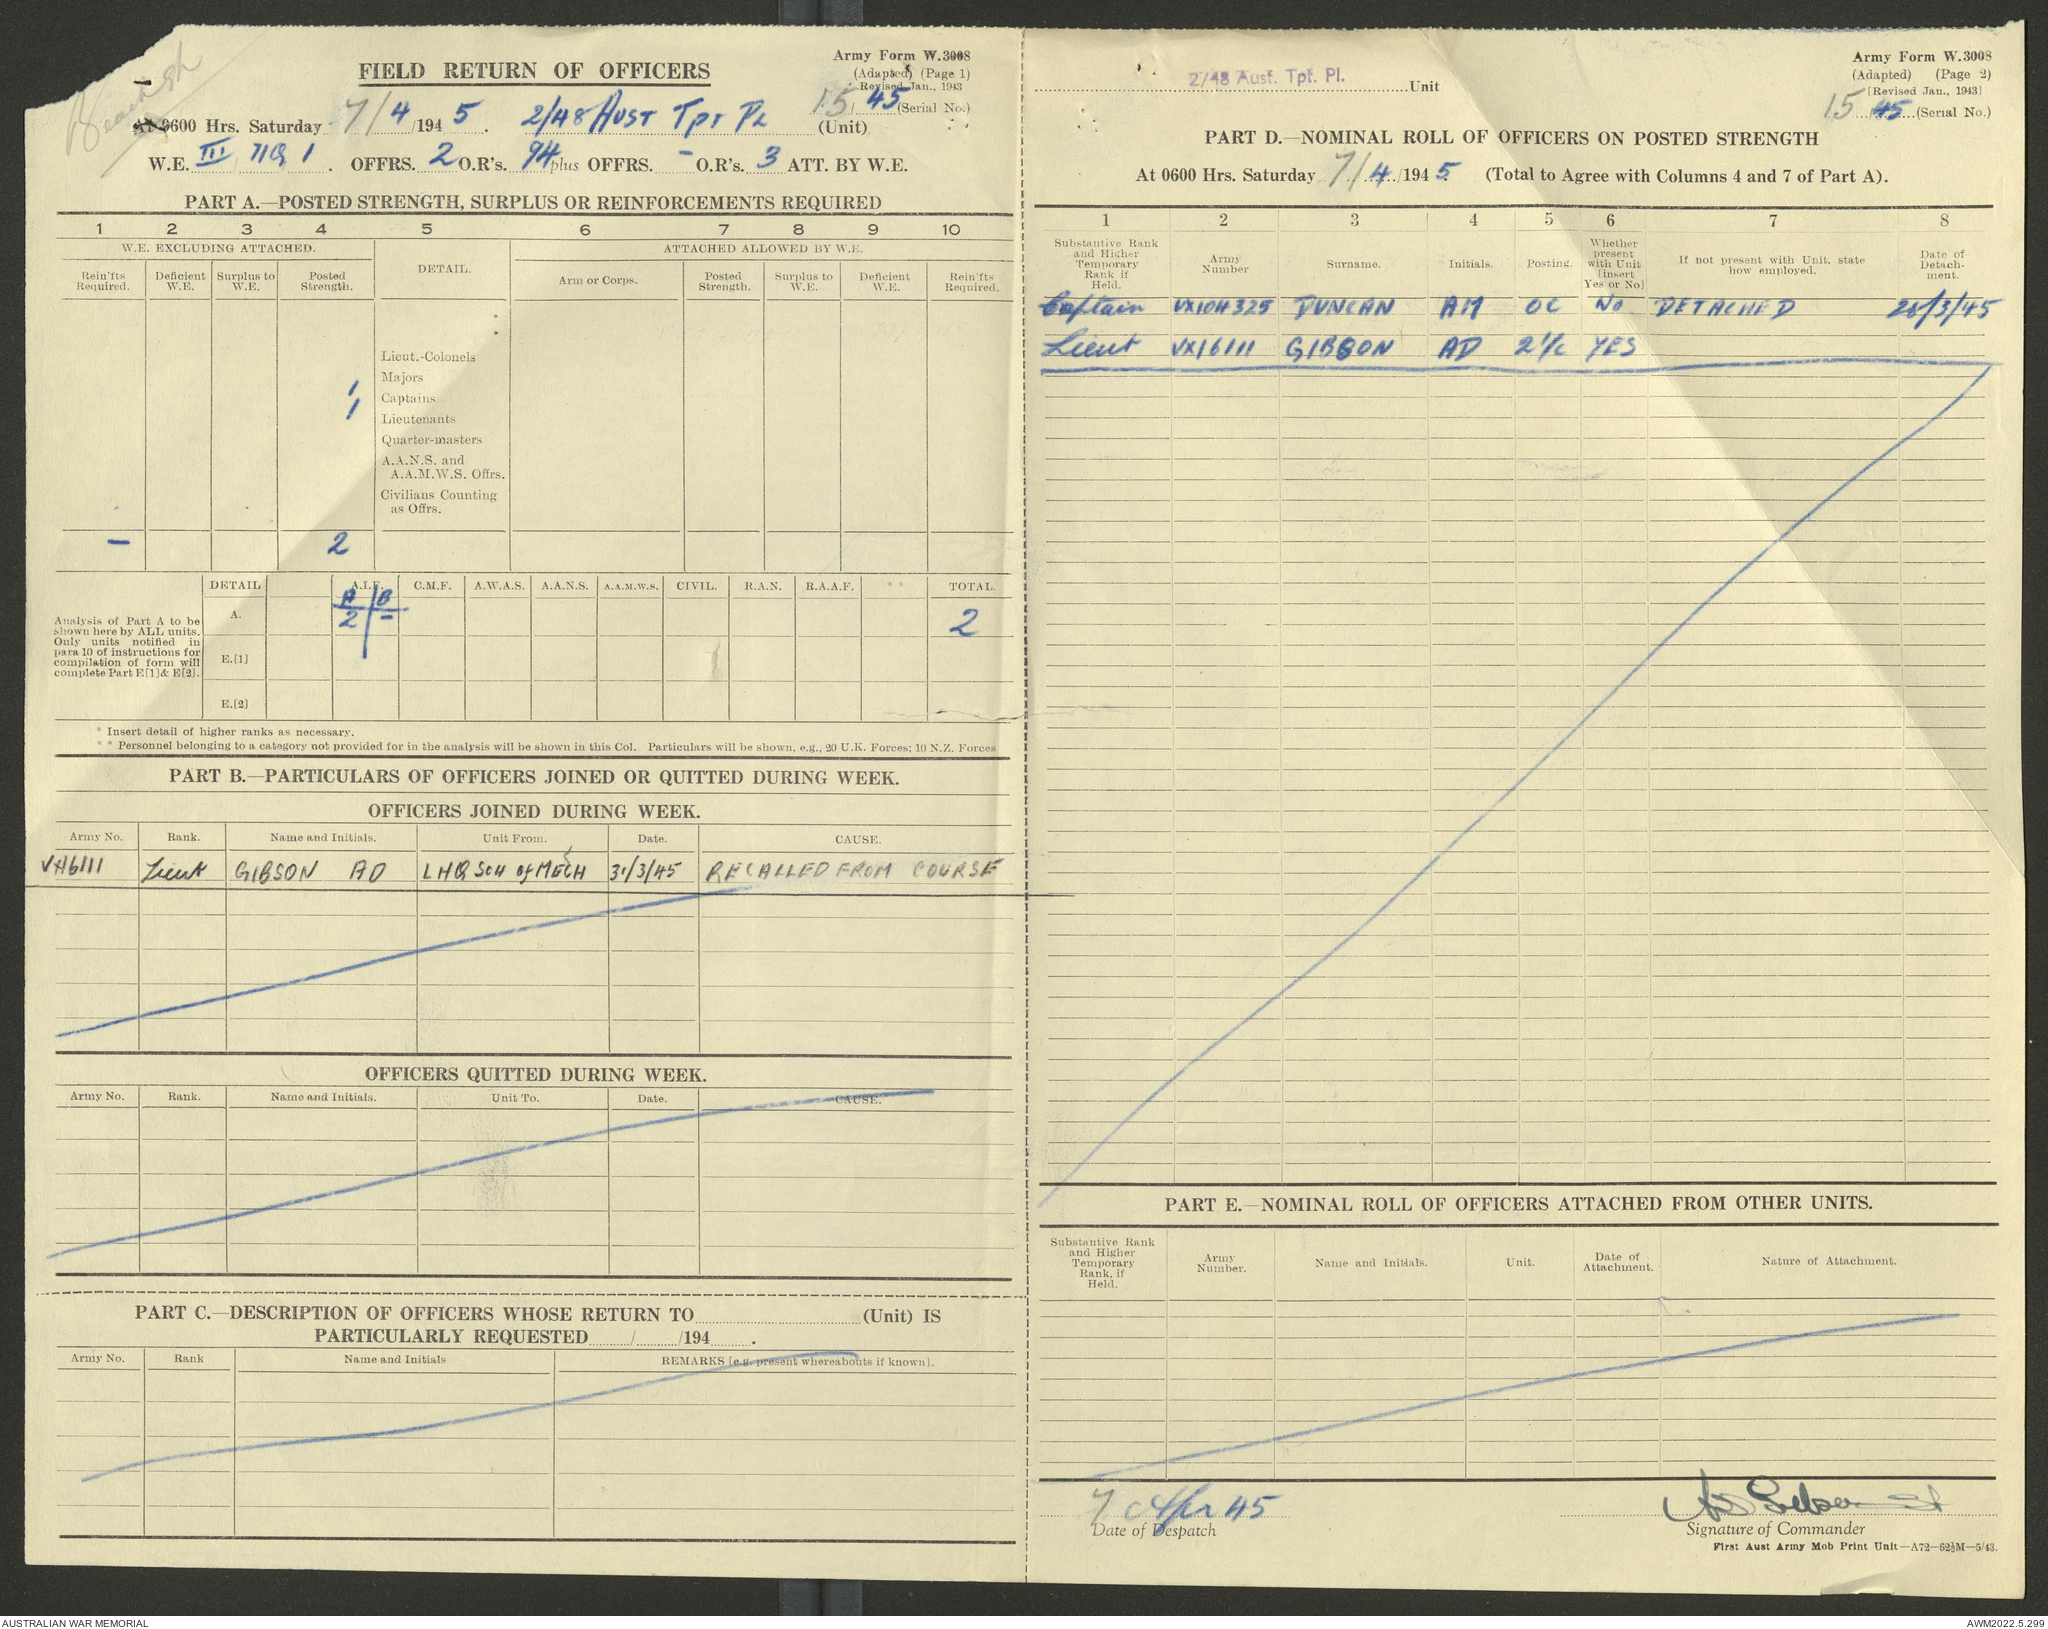 FIELD RETURN OF OFFICERS
Army Form W.3008
(Adapted) (Page 1)
Revised Jan., 1943
15/45 (Serial No.)
At 0600 Hrs. Saturday 7/4/1945. 2/48 AUST TPT PL (Unit)
W.E. III OFFRS. 2 O.R's. 94 plus OFFRS. - O.R's. 3 ATT. BY W.E.
PART A.—POSTED STRENGTH, SURPLUS OR REINFORCEMENTS REQUIRED
1 2 3 4 5 6 7 8 9 10
W.E. EXCLUDING ATTACHED. DETAIL. ATTACHED ALLOWED BY W.E.
Rein'fts Required. Deficient W.E. Surplus to W.E. Posted Strength. Arm or Corps. Posted Strength. Surplus to W.E. Deficient W.E. Rein'fts Required.
Lieut.-Colonels
Majors
1 Captains
1 Lieutenants
Quarter-masters
A.A.N.S. and
A.A.M.W.S. Offrs.
Civilians Counting
as Offrs.
- 2
DETAIL A.I.F. C.M.F. A.W.A.S. A.A.N.S. A.A.M.W.S. CIVIL. R.A.N. R.A.A.F. ** TOTAL.
A B
A. 2 - 2
Analysis of Part A to be
shown here by ALL units.
Only units notified in
para 10 of instructions for
compilation of form will
complete Part E[1] & E[2].
E.[1]
E.[2]
* Insert detail of higher ranks as necessary.
** Personnel belonging to a category not provided for in the analysis will be shown in this Col. Particulars will be shown, e.g., 20 U.K. Forces; 10 N.Z. Forces
PART B.—PARTICULARS OF OFFICERS JOINED OR QUITTED DURING WEEK.
OFFICERS JOINED DURING WEEK.
Army No. Rank. Name and Initials. Unit From. Date. CAUSE.
VX16111 Lieut GIBSON AD LHQ Sch of MECH 31/3/45 RECALLED FROM COURSE
OFFICERS QUITTED DURING WEEK.
Army No. Rank. Name and Initials. Unit To. Date. CAUSE.
PART C.—DESCRIPTION OF OFFICERS WHOSE RETURN TO (Unit) IS
PARTICULARLY REQUESTED / /194 .
Army No. Rank Name and Initials REMARKS [e.g. present whereabouts if known].
2/48 Aust. Tpt. Pl. Unit
Army Form W.3008
(Adapted) (Page 2)
[Revised Jan., 1943]
15/45 (Serial No.)
PART D.—NOMINAL ROLL OF OFFICERS ON POSTED STRENGTH
At 0600 Hrs. Saturday 7/4/1945. (Total to Agree with Columns 4 and 7 of Part A).
1 2 3 4 5 6 7 8
Substantive Rank and Higher Temporary Rank if Held. Army Number Surname. Initials. Posting. Whether present with Unit [insert Yes or No] If not present with Unit, state how employed. Date of Detachment.
Captain VX104325 DUNCAN AM OC NO DETACHED 28/3/45
Lieut VX16111 GIBSON AD 2 i/c YES
PART E.—NOMINAL ROLL OF OFFICERS ATTACHED FROM OTHER UNITS.
Substantive Rank and Higher Temporary Rank, if Held. Army Number. Name and Initials. Unit. Date of Attachment. Nature of Attachment.
7 Apr 45
Date of Despatch
AD Gibson Lt
Signature of Commander
First Aust Army Mob Print Unit—A72—62½M—5/43.
AUSTRALIAN WAR MEMORIAL
AWM2022.5.299